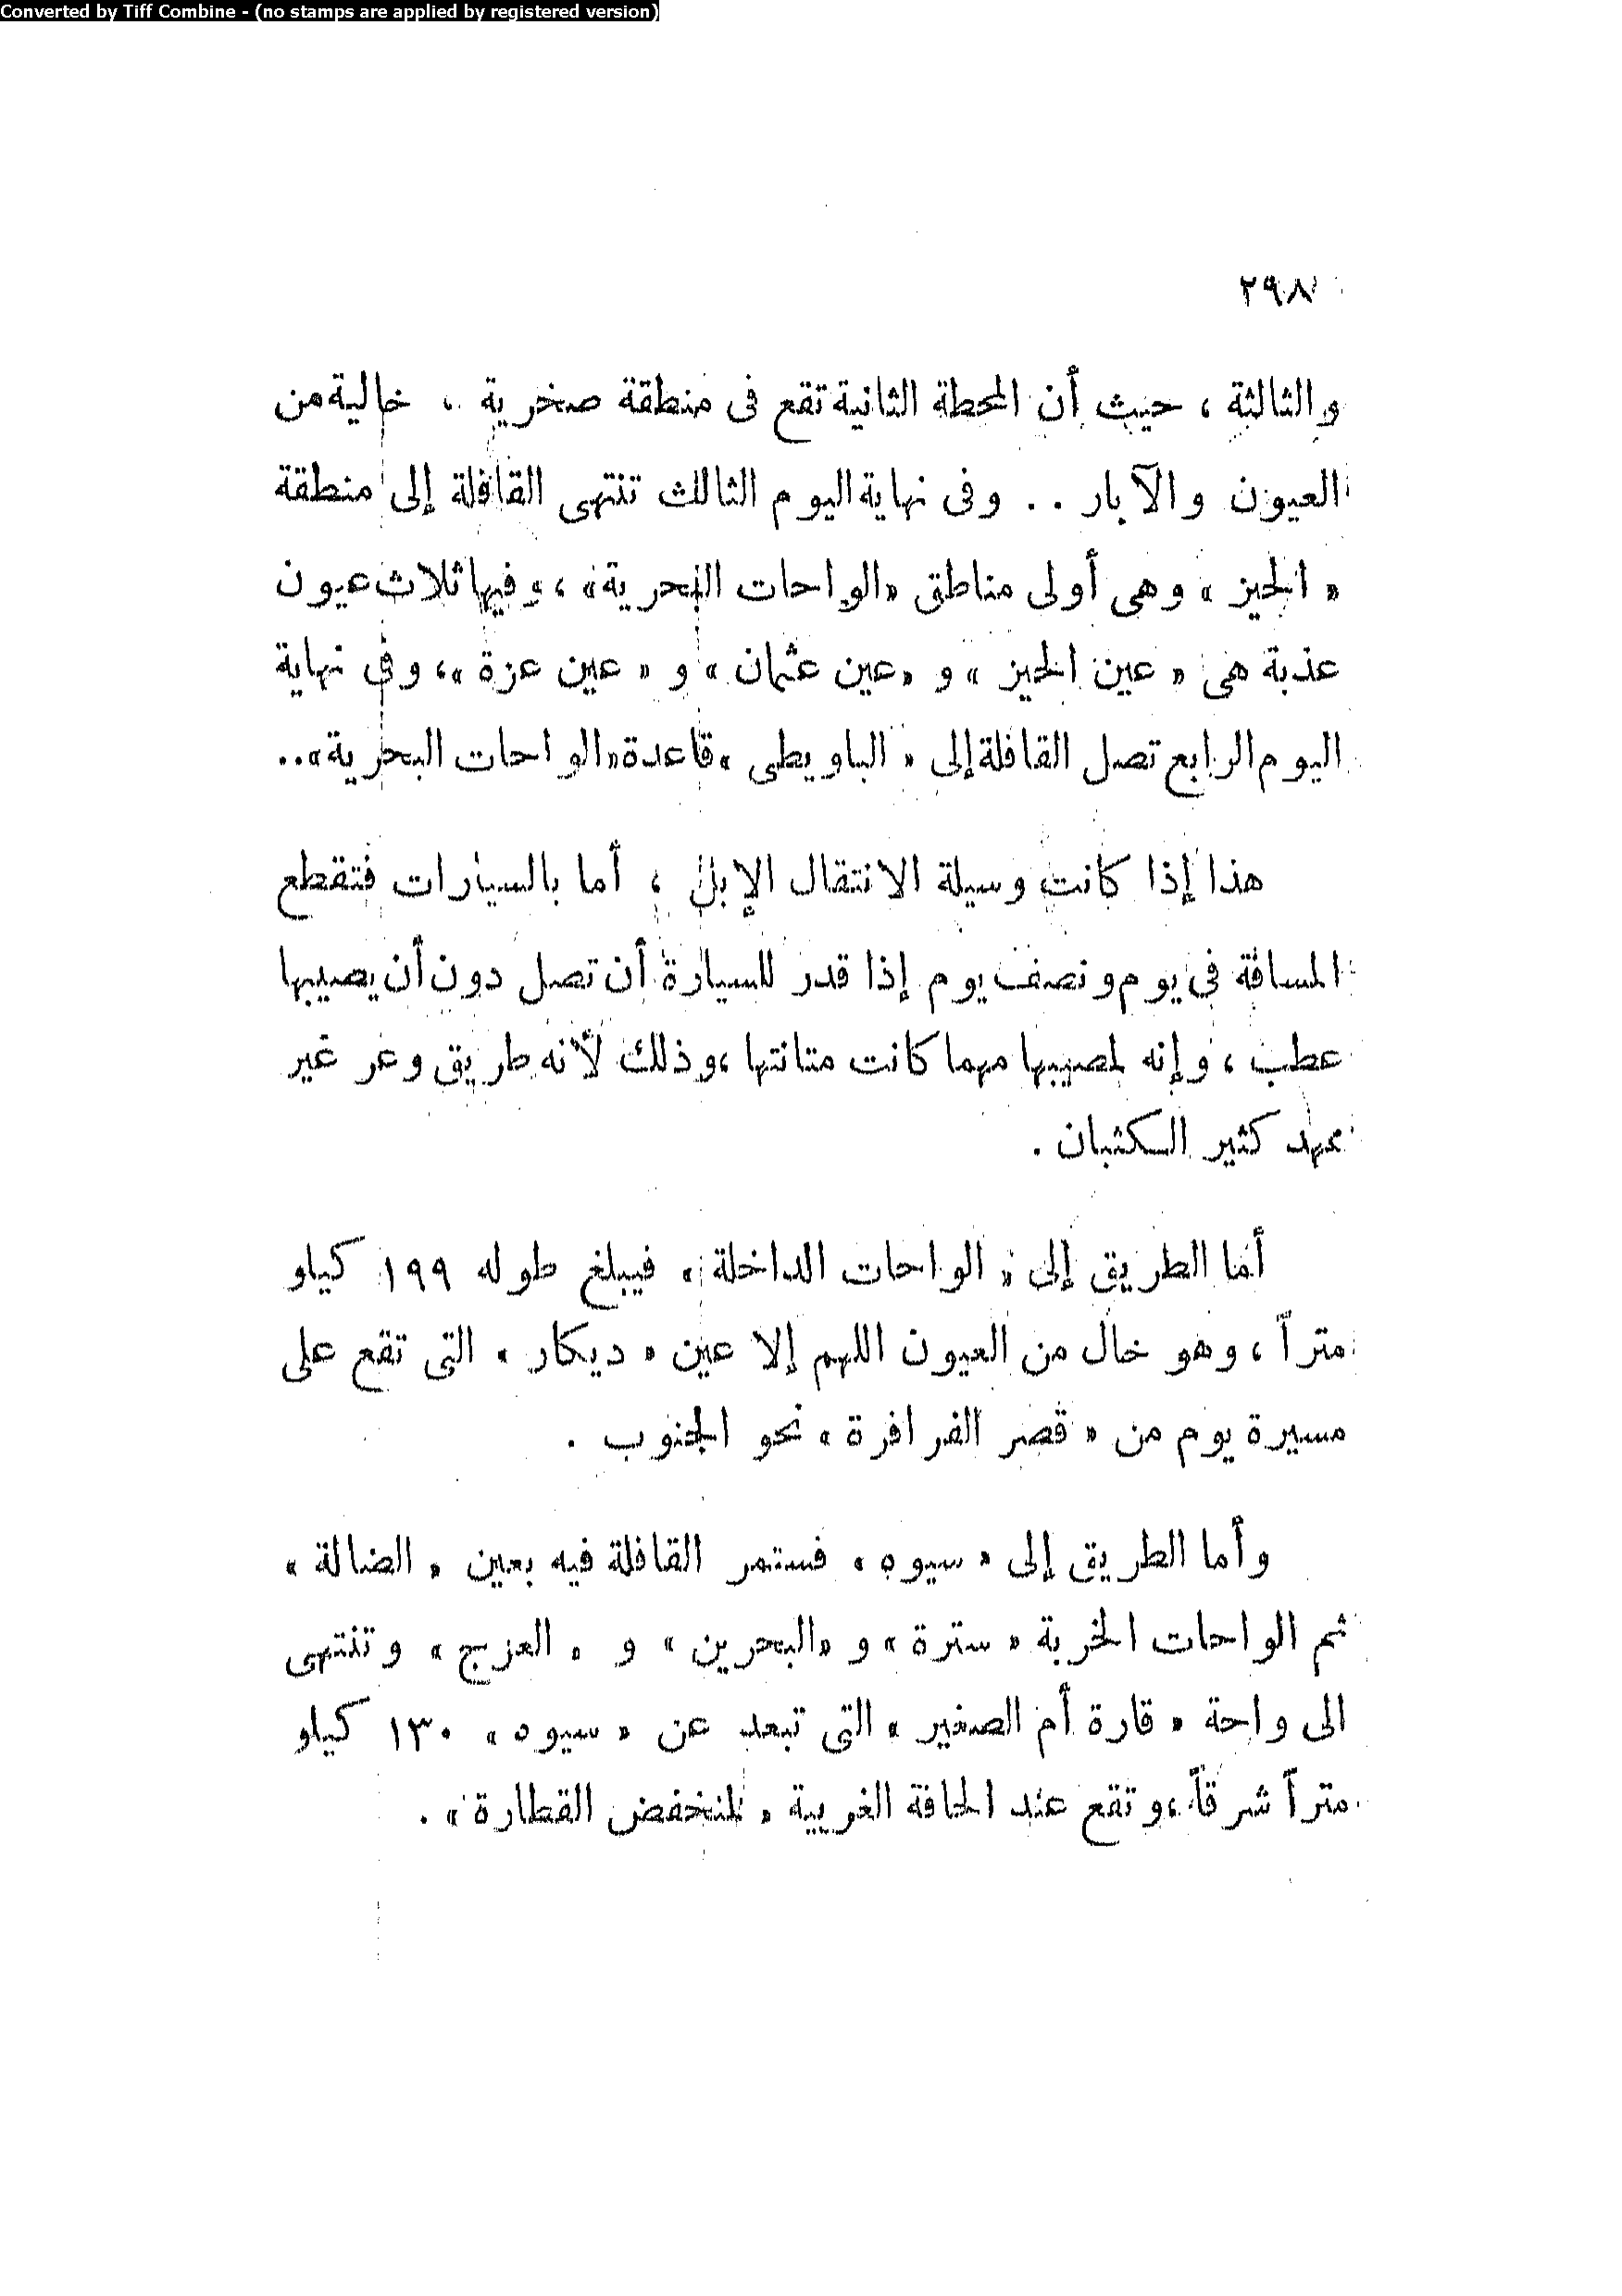 Converted by Tiff Combine - (no stamps are applied by registered version)
٢٩٨
والثالثة ، حيث أن المحطة الثانية تقع فى منطقة صخرية ، خالية من
العيون والآبار .. وفى نهاية اليوم الثالث تنتهى القافلة إلى منطقة
« الحيز » وهى أولى مناطق «الواحات البحرية» ، وفيها ثلاث عيون
عذبة هى « عين الحيز » و «عين عثمان » و « عين عزة »، وفى نهاية
اليوم الرابع تصل القافلة إلى « الباويطى » قاعدة «الواحات البحرية»..
هذا إذا كانت وسيلة الانتقال الإبل ، أما بالسيارات فتقطع
المسافة فى يوم ونصف يوم إذا قدر للسيارة أن تصل دون أن يصيبها
عطب ، وإنه لمصيبها مهما كانت متانتها ، وذلك لأنه طريق وعر غير
ممهد كثير الكثبان .
أما الطريق إلى « الواحات الداخلة » فيبلغ طوله ١٩٩ كيلو
متراً ، وهو خال من العيون اللهم إلا عين « ديكار » التى تقع على
مسيرة يوم من « قصر الفرافرة » نحو الجنوب .
وأما الطريق إلى « سيوه » فستمر القافلة فيه بعين « الضالة »
ثم الواحات الخربة « سترة » و «البحرين » و « العزج » وتنتهى
الى واحة « قارة أم الصغير » التى تبعد عن « سيوه » ١٣٠ كيلو
متراً شرقاً ، وتقع عند الحافة الغربية « لمنخفض القطارة » .